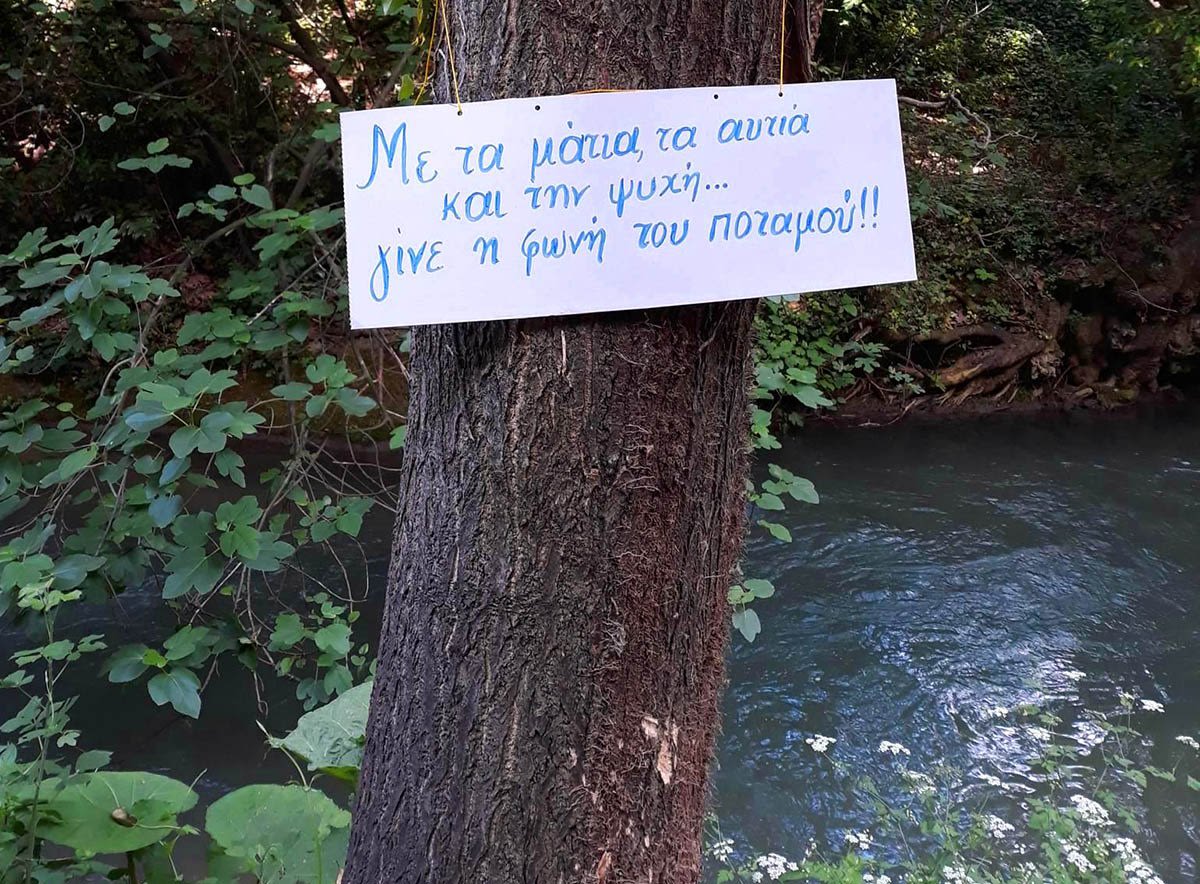 Με τα μάτια, τα αυτιά
και την ψυχή...
γίνε η φωνή του ποταμού!!